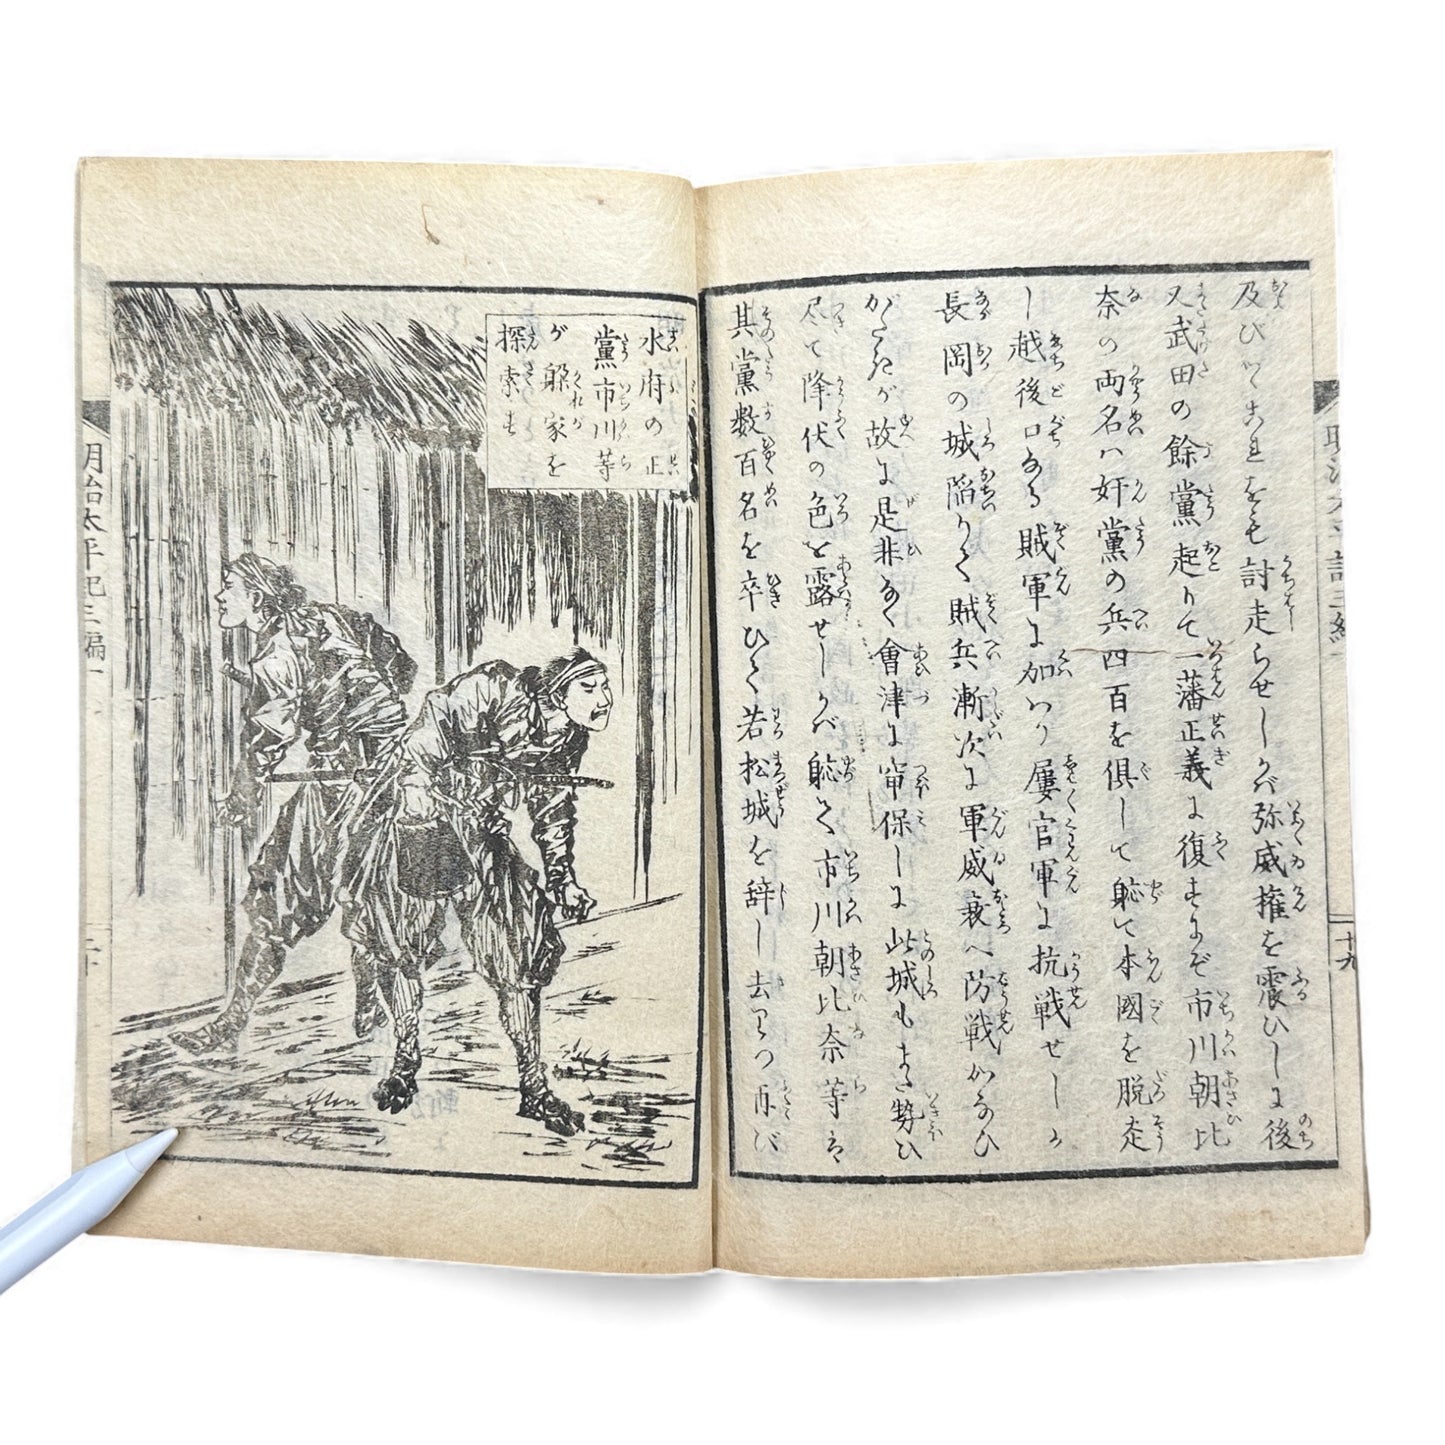 及びしかこれをも討走らせしかバ弥威権を震ひしに後
又武田の餘黨起りて一藩正義に復すにぞ市川朝比
奈の両名ハ奸黨の兵四百を倶して竊て本國を脱走
し越後口なる賊軍に加ハり屡官軍に抗戦せしか
長岡の城陥りて賊兵漸次に軍威衰へ防戦かなひ
がたきが故に是非なく會津に窜保しに此城もまた勢ひ
尽て降伏の色を露せしかバ竊て市川朝比奈等は
其黨数百名を卒ひて若松城を辞し去りつ再び
水府の正
黨市川等
が躱家を
探索す
明治太平記三編一
十九